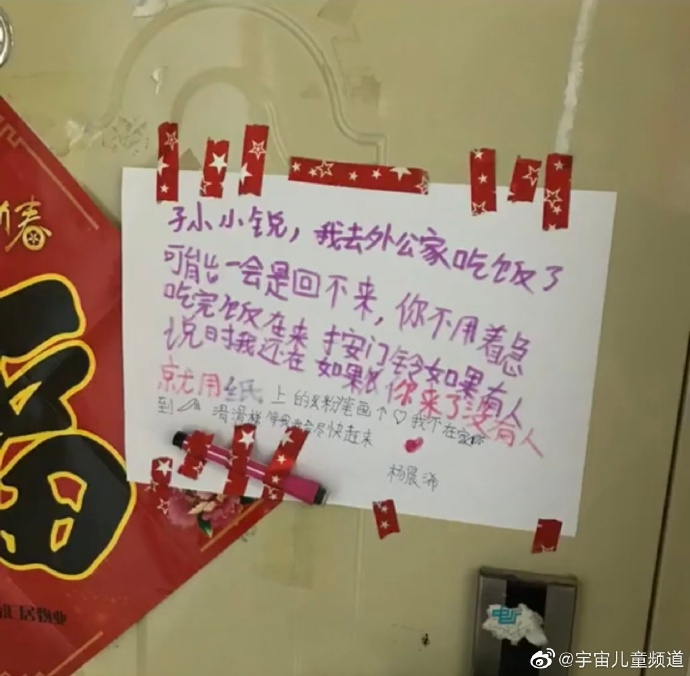 春
福
汇居物业
孙小小锐，我去外公家吃饭了
可能一会是回不来，你不用着急
吃完饭在来 按门铃如果有人
说时我还在 如果 你来了没有人
就用纸上的彩粉笔画个♡我不在家你
到 滑滑梯等我我会尽快赶来
杨晨浠
@宇宙儿童频道